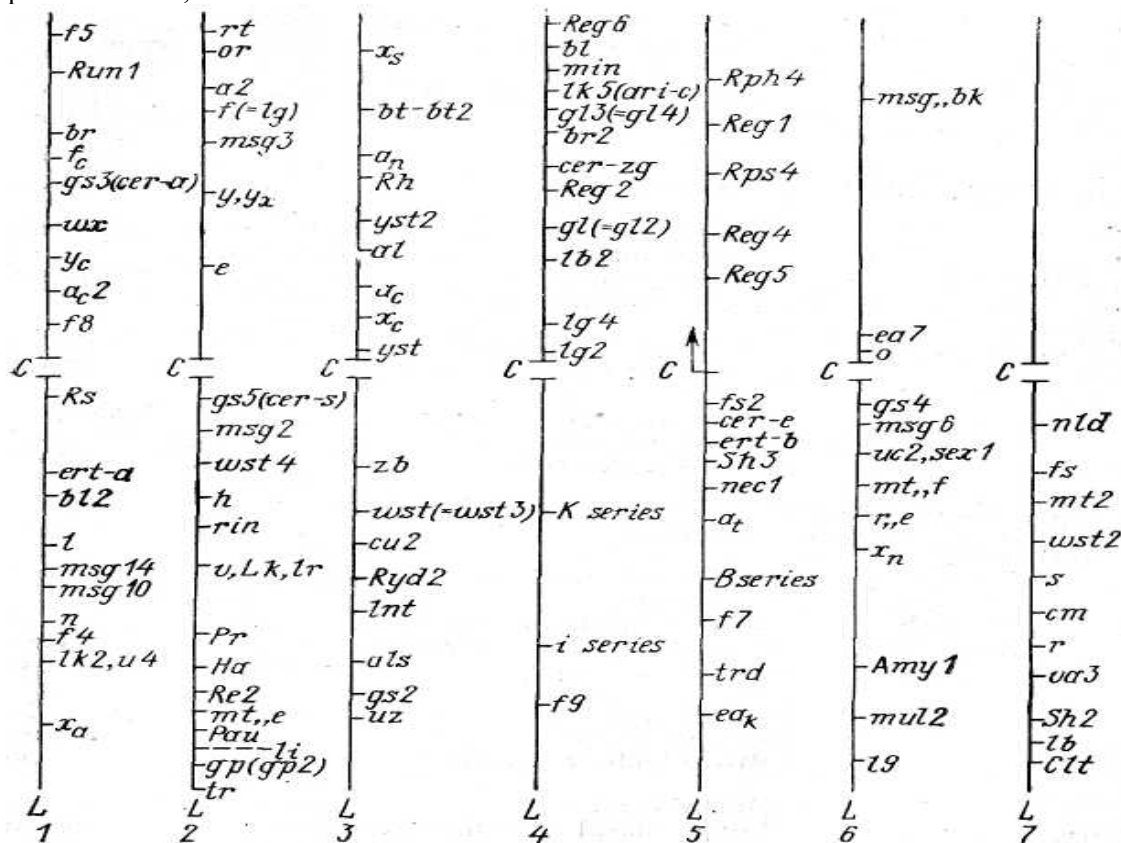 f5
Run1
br
f_c
gs3(cer-a)
wx
y_c
a_c2
f8
C
Rs
ert-a
bl2
l
msg14
msg10
n
f4
lk2,u4
x_a
L
1
rt
or
a2
f(=lg)
msg3
y,y_x
e
C
gs5(cer-s)
msg2
wst4
h
rin
v,Lk,lr
Pr
Ha
Re2
mt,,e
Pau
li
gp(gp2)
tr
L
2
x_s
bt-bt2
a_n
Rh
yst2
al
a_c
x_c
yst
C
zb
wst(=wst3)
cu2
Ryd2
lnt
als
gs2
uz
L
3
Reg6
bl
min
lk5(ari-c)
gl3(=gl4)
br2
cer-zg
Reg2
gl(=gl2)
lb2
lg4
lg2
C
K series
i series
f9
L
4
Rph4
Reg1
Rps4
Reg4
Reg5
C
fs2
cer-e
ert-b
Sh3
nec1
a_t
B series
f7
trd
ea_k
L
5
msg,,bk
ea7
o
C
gs4
msg6
uc2,sex1
mt,,f
r,,e
x_n
Amy1
mul2
L
6
C
nld
fs
mt2
wst2
s
cm
r
va3
Sh2
lb
Clt
L
7